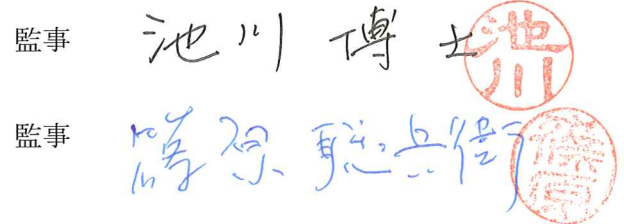 監事 池川 博士 池川
監事 篠原 聡兵衛 篠原